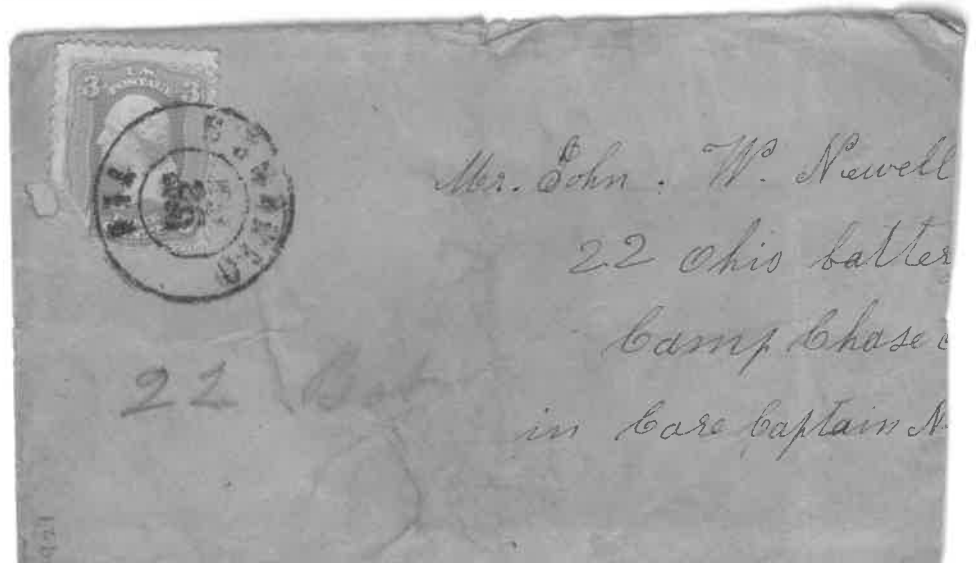 3 U.S. POSTAGE 3
Mr. John. W. Newell
22 Ohio batter
Camp Chase
in Care Captain N
22 Bat